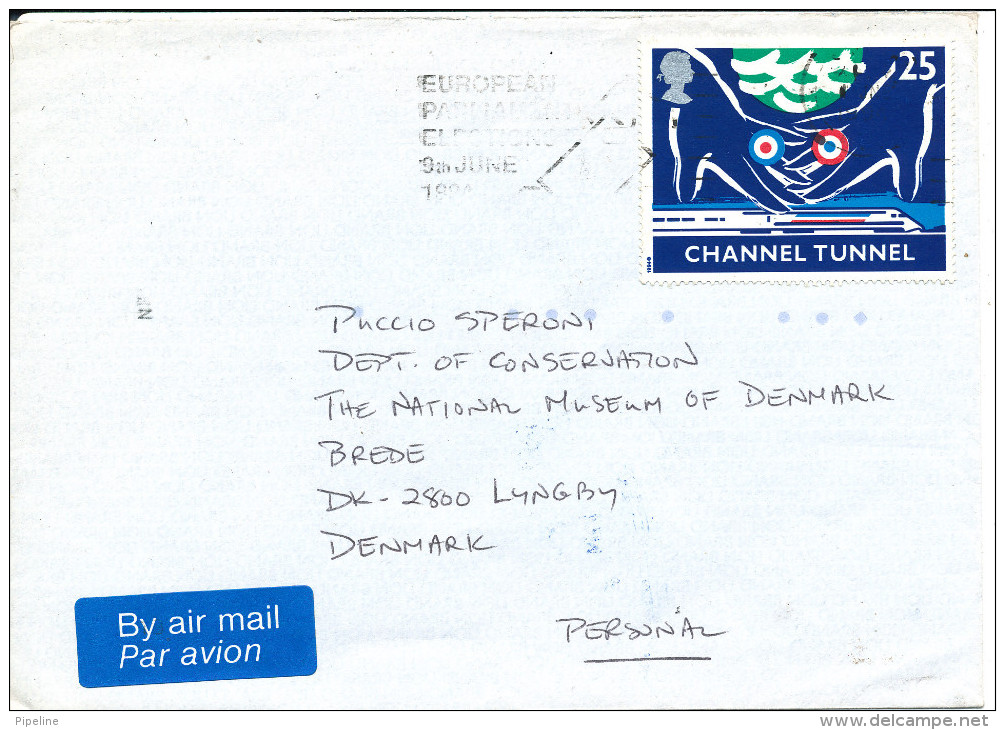 EUROPEAN
PARLIAMENTARY
ELECTIONS
9th JUNE
1994
25
CHANNEL TUNNEL
PUCCIO SPERONI
DEPT. OF CONSERVATION
THE NATIONAL MUSEUM OF DENMARK
BREDE
DK-2800 LYNGBY
DENMARK
By air mail
Par avion
PERSONAL
Pipeline
www.delcampe.net